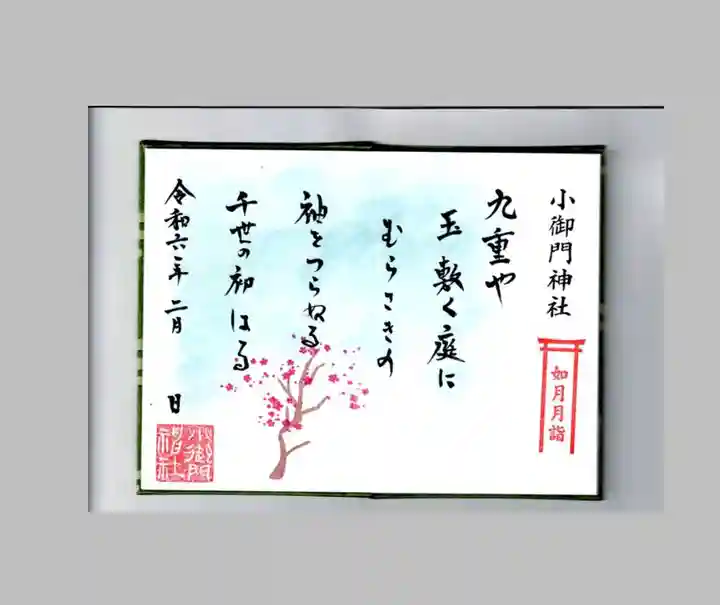 小御門神社
如月月詣
九重や
玉敷く庭に
むらさきの
袖をつらぬる
千世の初はる
令和六年二月　日
小御門神社